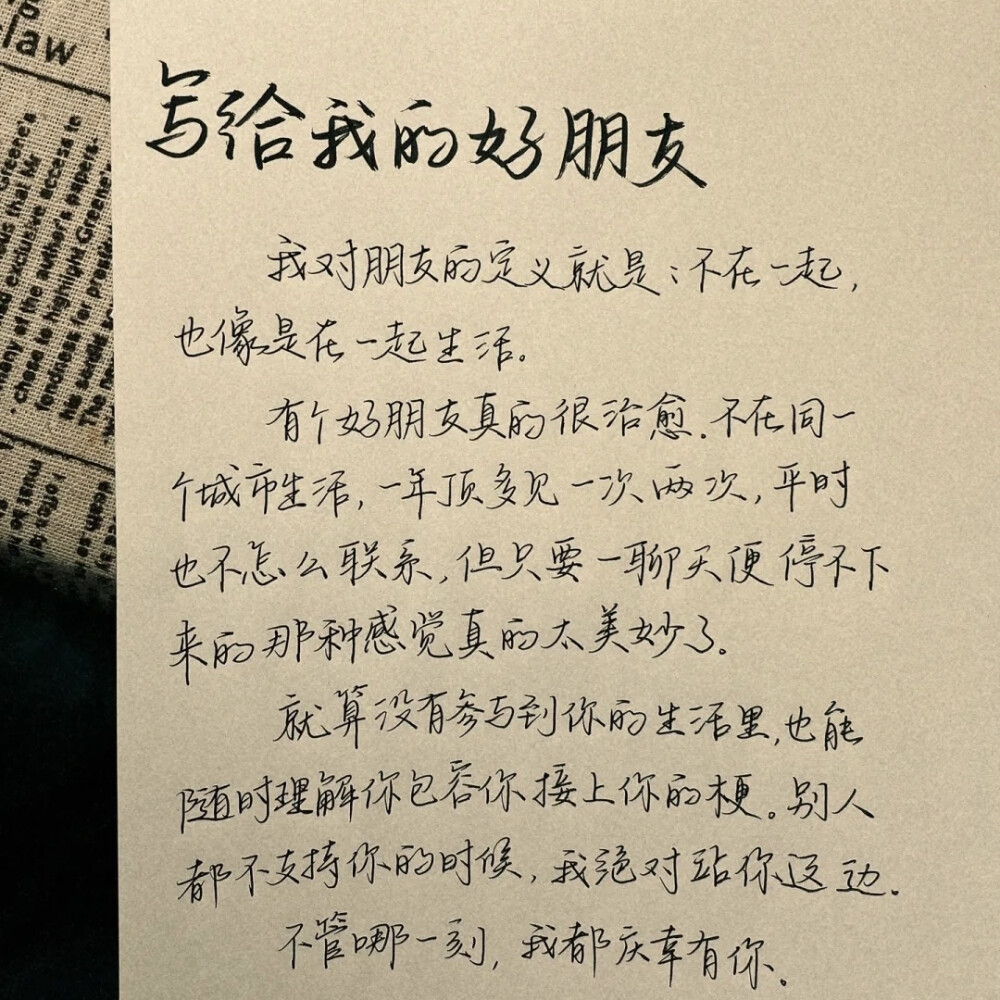 law
写给我的好朋友
我对朋友的定义就是:不在一起,
也像是在一起生活。
有个好朋友真的很治愈.不在同一
个城市生活,一年顶多见一次两次,平时
也不怎么联系,但只要一聊天便停不下
来的那种感觉真的太美妙了。
就算没有参与到你的生活里,也能
随时理解你包容你接上你的梗。别人
都不支持你的时候,我绝对站你这边.
不管哪一刻,我都庆幸有你.